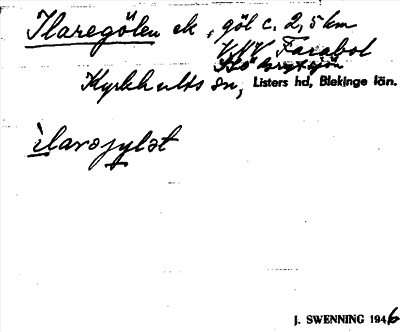 Ilaregölen ek, göl c. 2,5 km
VNV Farabol
SSö
Kyrkhults sn, Listers hd, Blekinge län.
ilarəjylət
J. SWENNING 1946